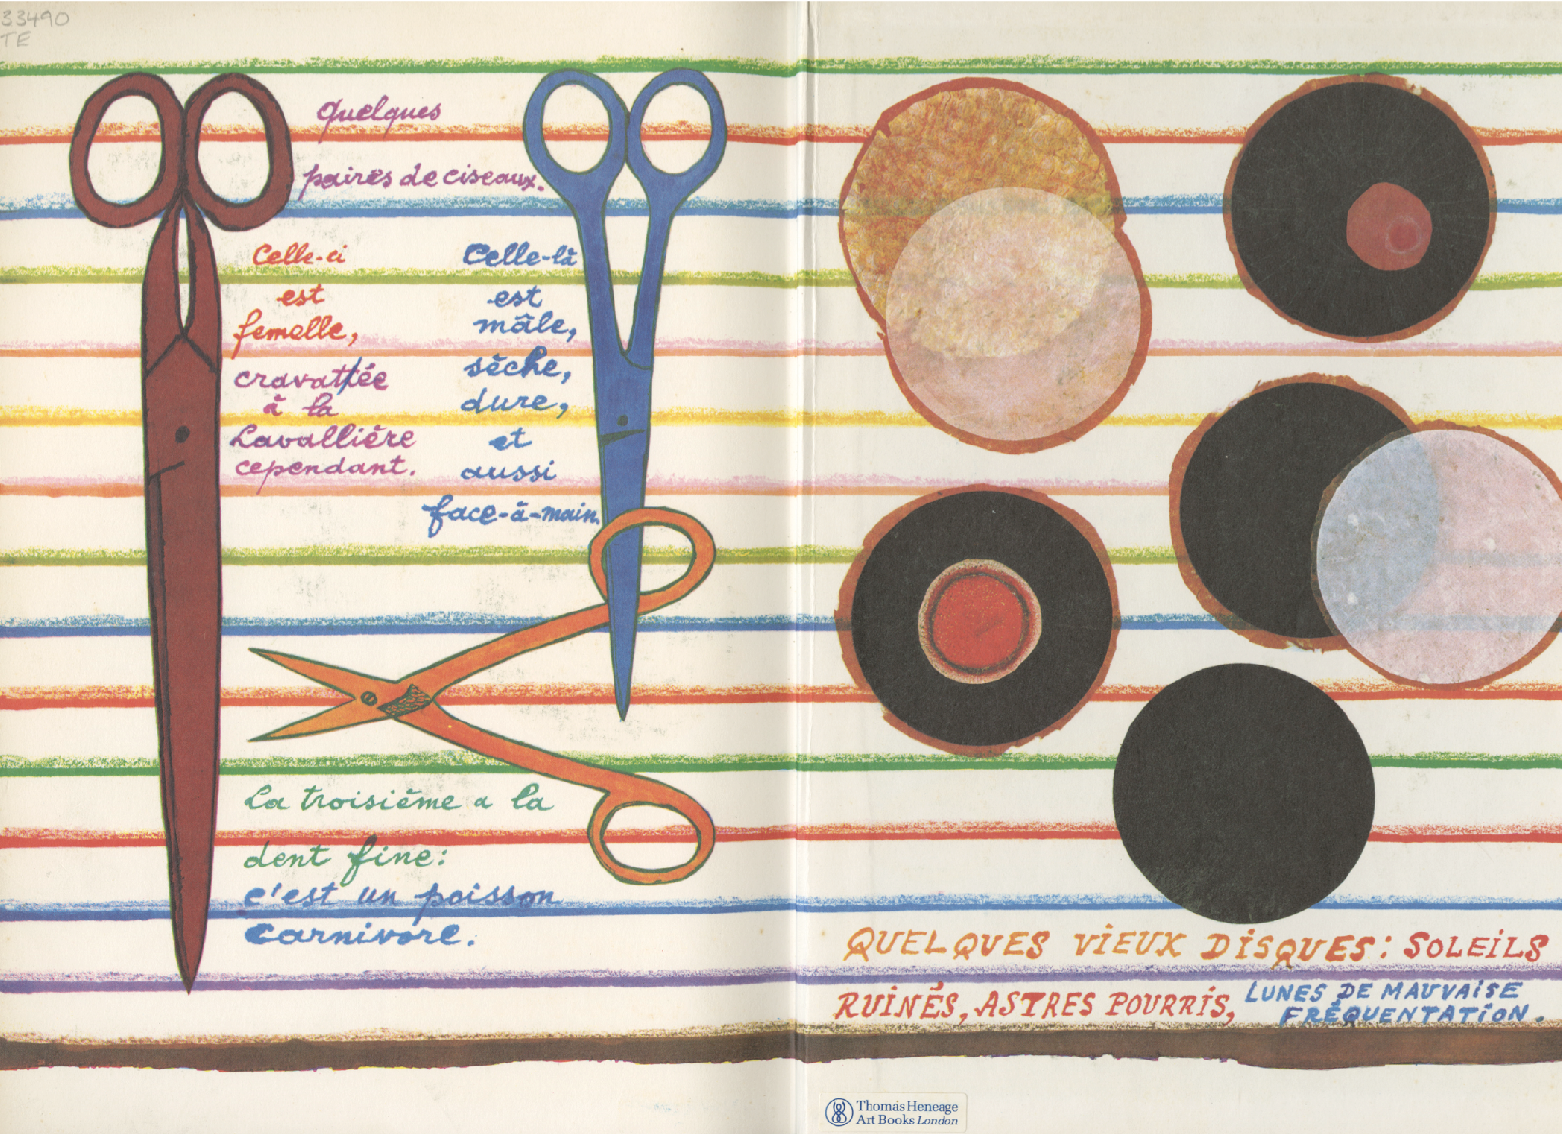 33490
TE
Quelques
paires de ciseaux.
Celle-ci
est
femelle,
cravattée
à la
Lavallière
cependant.
Celle-là
est
mâle,
sèche,
dure,
et
aussi
face-à-main.
La troisième a la
dent fine:
c'est un poisson
carnivore.
QUELQUES VIEUX DISQUES: SOLEILS
RUINÉS, ASTRES POURRIS, LUNES DE MAUVAISE
FRÉQUENTATION.
Thomas Heneage
Art Books London